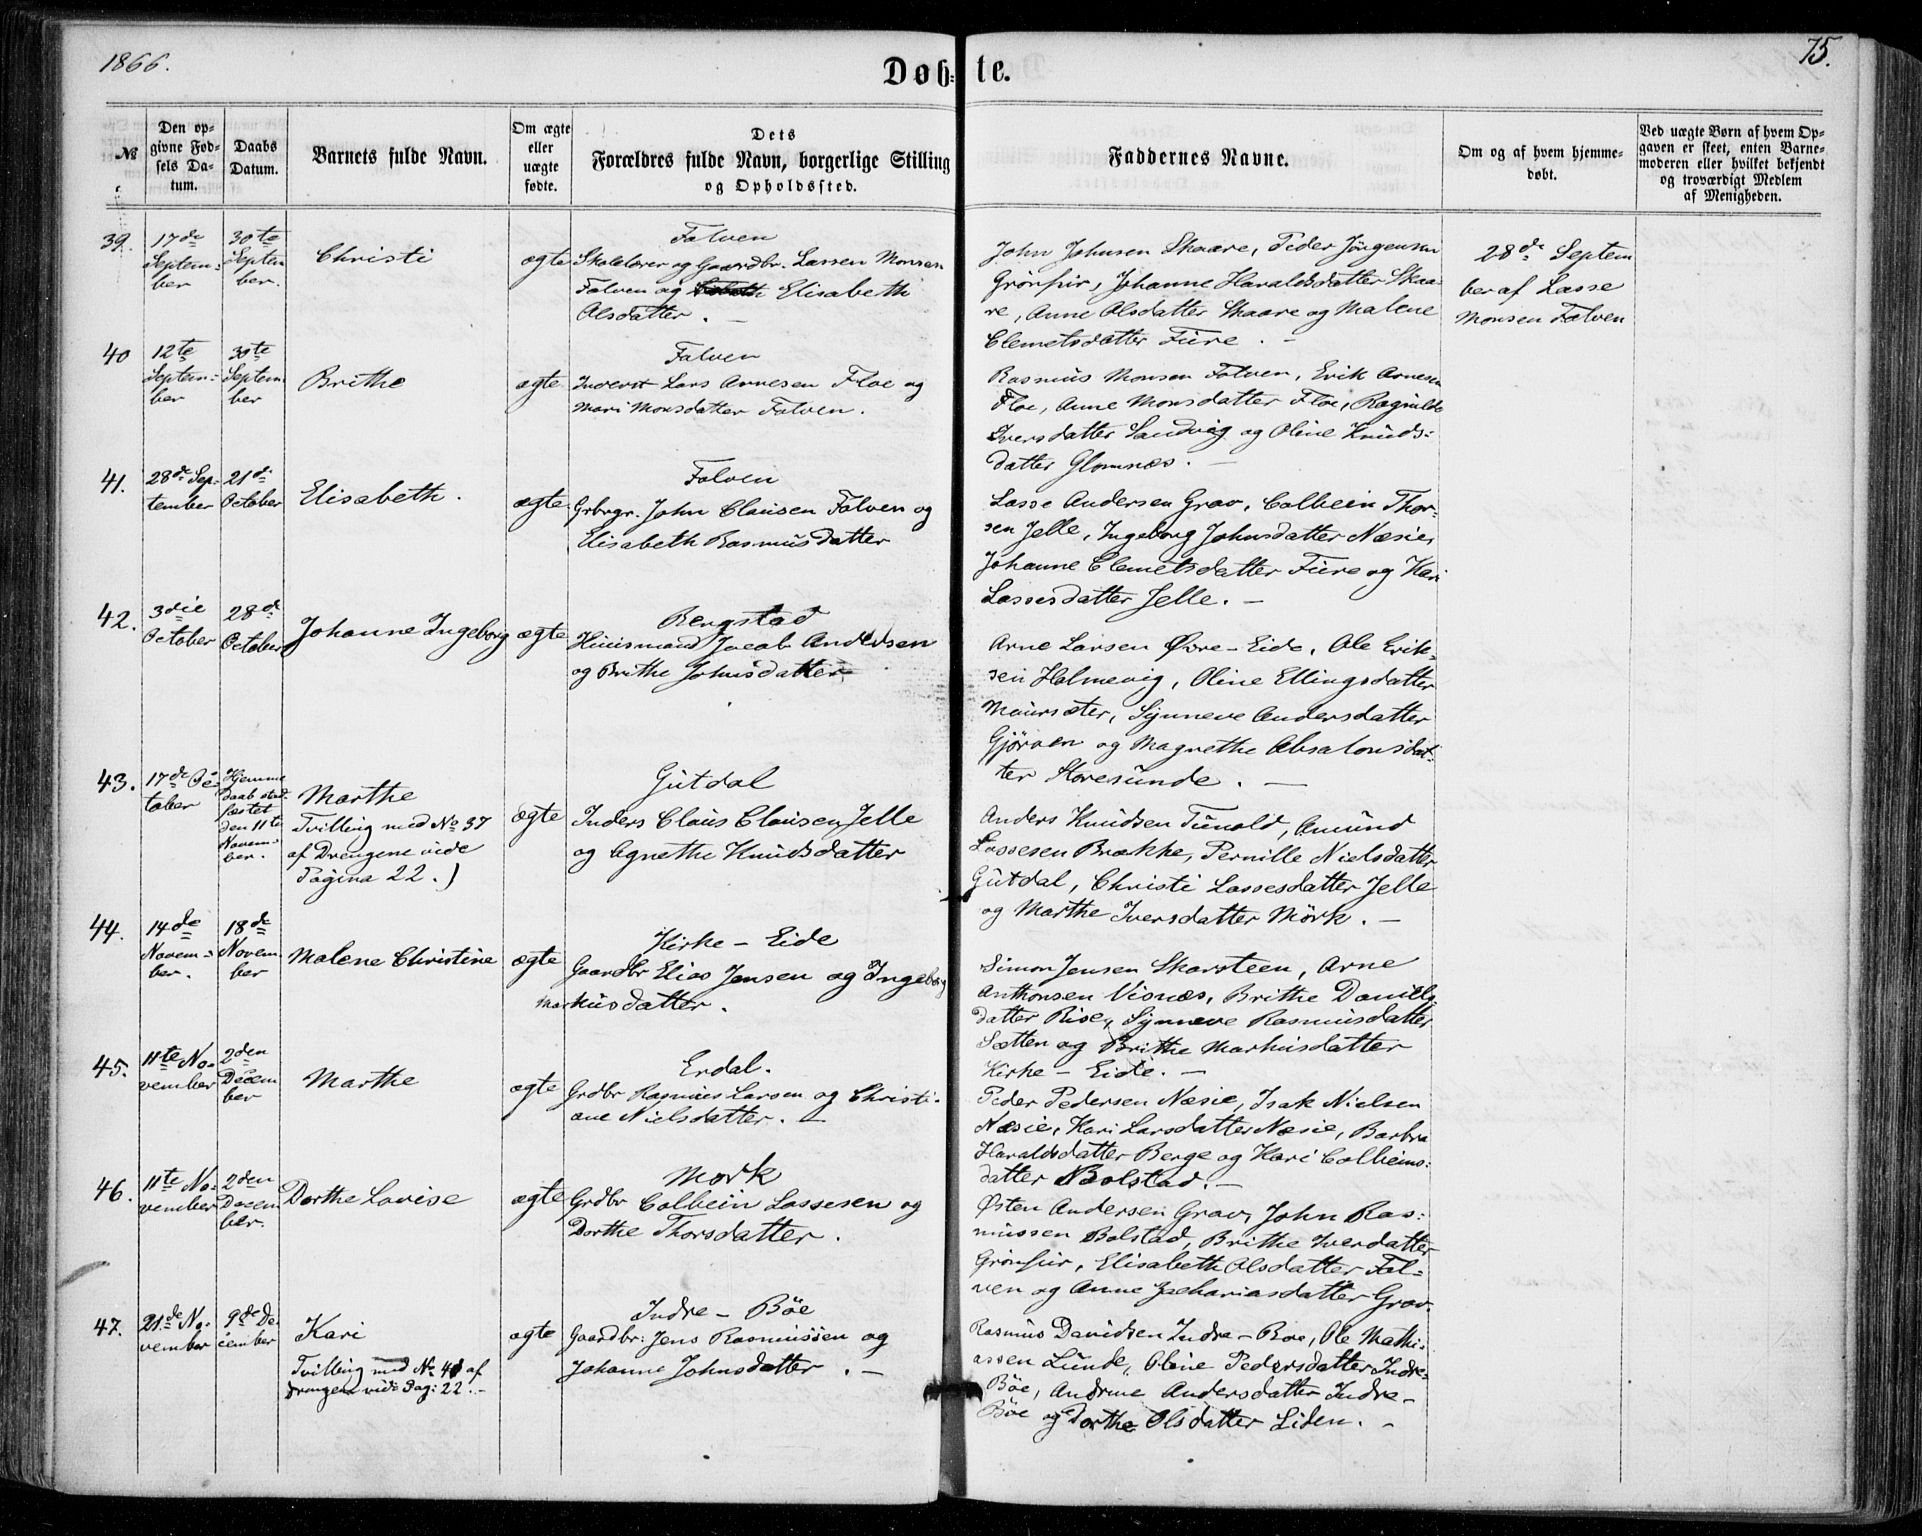 1866.
75.
Døbte.
№
Den opgivne Fødsels Datum.
Daabs Datum.
Barnets fulde Navn.
Om ægte eller uægte fødte.
Dets Forældres fulde Navn, borgerlige Stilling og Opholdssted.
Faddernes Navne.
Om og af hvem hjemmedøbt.
Ved uægte Børn af hvem Opgaven er skeet, enten Barnemoderen eller hvilket bekjendt og troværdigt Medlem af Menigheden.
39.
17de
Septem-
ber
30te
Septem
ber.
Christi
ægte
Folven
Skolelærer og Gaardbr. Lassen Monsen
Folven og Elisabeth
Olsdatter. —
John Johnsen Skaare, Peder Jørgensen
Grønfur, Johanne Haraldsdatter Skaa-
re, Anne Olsdatter Skaare og Malene
Clemetsdatter Fure. —
28de Septem
ber af Lasse
Monsen Folven
40
12te
Septem-
ber
30te
Septem
ber
Brithe
ægte
Folven
Inderst Lars Arnesen Floe og
Mari Monsdatter Folven.
Rasmus Monsen Folven, Erik Arnesen
Floe, Anne Monsdatter Floe, Ragnilde
Iversdatter Sandvig og Oline Knuds-
datter Glomnæs. —
41.
28de Sep-
tember
21de
October
Elisabeth.
ægte
Folven
Grbrgr. John Clausen Folven og
Elisabeth Rasmusdatter
Lasse Andersen Grov, Colbein Thor-
sen Jelle, Ingeborg Johnsdatter Næsie,
Johanne Clemetsdatter Fure og Kari
Lassesdatter Jelle. —
42.
3die
October
28de
October
Johanne Ingeborg
ægte
Bengstad
Huusmand Jacob Andersen
og Brithe Johnsdatter
Arne Larsen Øvre-Eide, Ole Erik-
sen Holmevig, Oline Ellingsdatter
Maursæter, Synneve Andersdatter
Gjørven og Magnethe Absalonsdat-
ter Storesunde. —
43.
17de Oc-
tober
Hjemme
daab stad-
fæstet
den 11te
Novem-
ber.
Marthe
Tvilling med № 37
af Drengene vide
Pagina 22.)
ægte
Gutdal
Inders Claus Clausen Jelle
og Agnethe Knudsdatter
Anders Knudsen Tunold, Amund
Lassesen Brække, Pernille Nielsdatter
Gutdal, Christi Lassesdatter Jelle
og Marthe Iversdatter Mørk. —
44.
14de
Novem-
ber.
18de
Novem
ber
Malene Christine
ægte
Kirke-Eide
Gaardbr Elias Jensen og Ingeborg
Markusdatter.
Simon Jensen Skarsteen, Arne
Anthonsen Visnæs, Brithe Daniels
datter Rise, Synneve Rasmusdatter
Sætten og Brithe Markusdatter
Kirke-Eide. —
45.
11te No-
vember
2den
Decem
ber
Marthe
ægte
Erdal.
Grdbr Rasmus Larsen og Christi-
ane Nielsdatter. —
Peder Pedersen Næsie, Isak Nielsen
Næsie, Kari Larsdatter Næsie, Barbra
Haraldsdatter Berge og Kari Colbeins-
datter Bolstad. —
46.
11te No-
vember
2den
Decem
ber.
Dorthe Lovise
ægte
Mørk
Grdbr Colbein Lassesen og
Dorthe Thorsdatter.
Østen Andersen Grov, John Ras-
mussen Bolstad, Brithe Iverdatter
Grønfur, Elisabeth Olsdatter Fol-
ven og Anne Zachariasdatter Grov.
47.
21de No-
vember
9de De-
cember
Kari
Tvilling med № af
drengene vide Pag: 22. —
ægte
Indre-Bøe
Gaardbr: Jens Rasmussen og
Johanne Johnsdatter. —
Rasmus Davidsen Indre-Bøe, Ole Mathi-
assen Lunde, Oline Pedersdatter Indre-
Bøe, Andrine Andersdatter Indre-
Bøe og Dorthe Olsdatter Liden. —